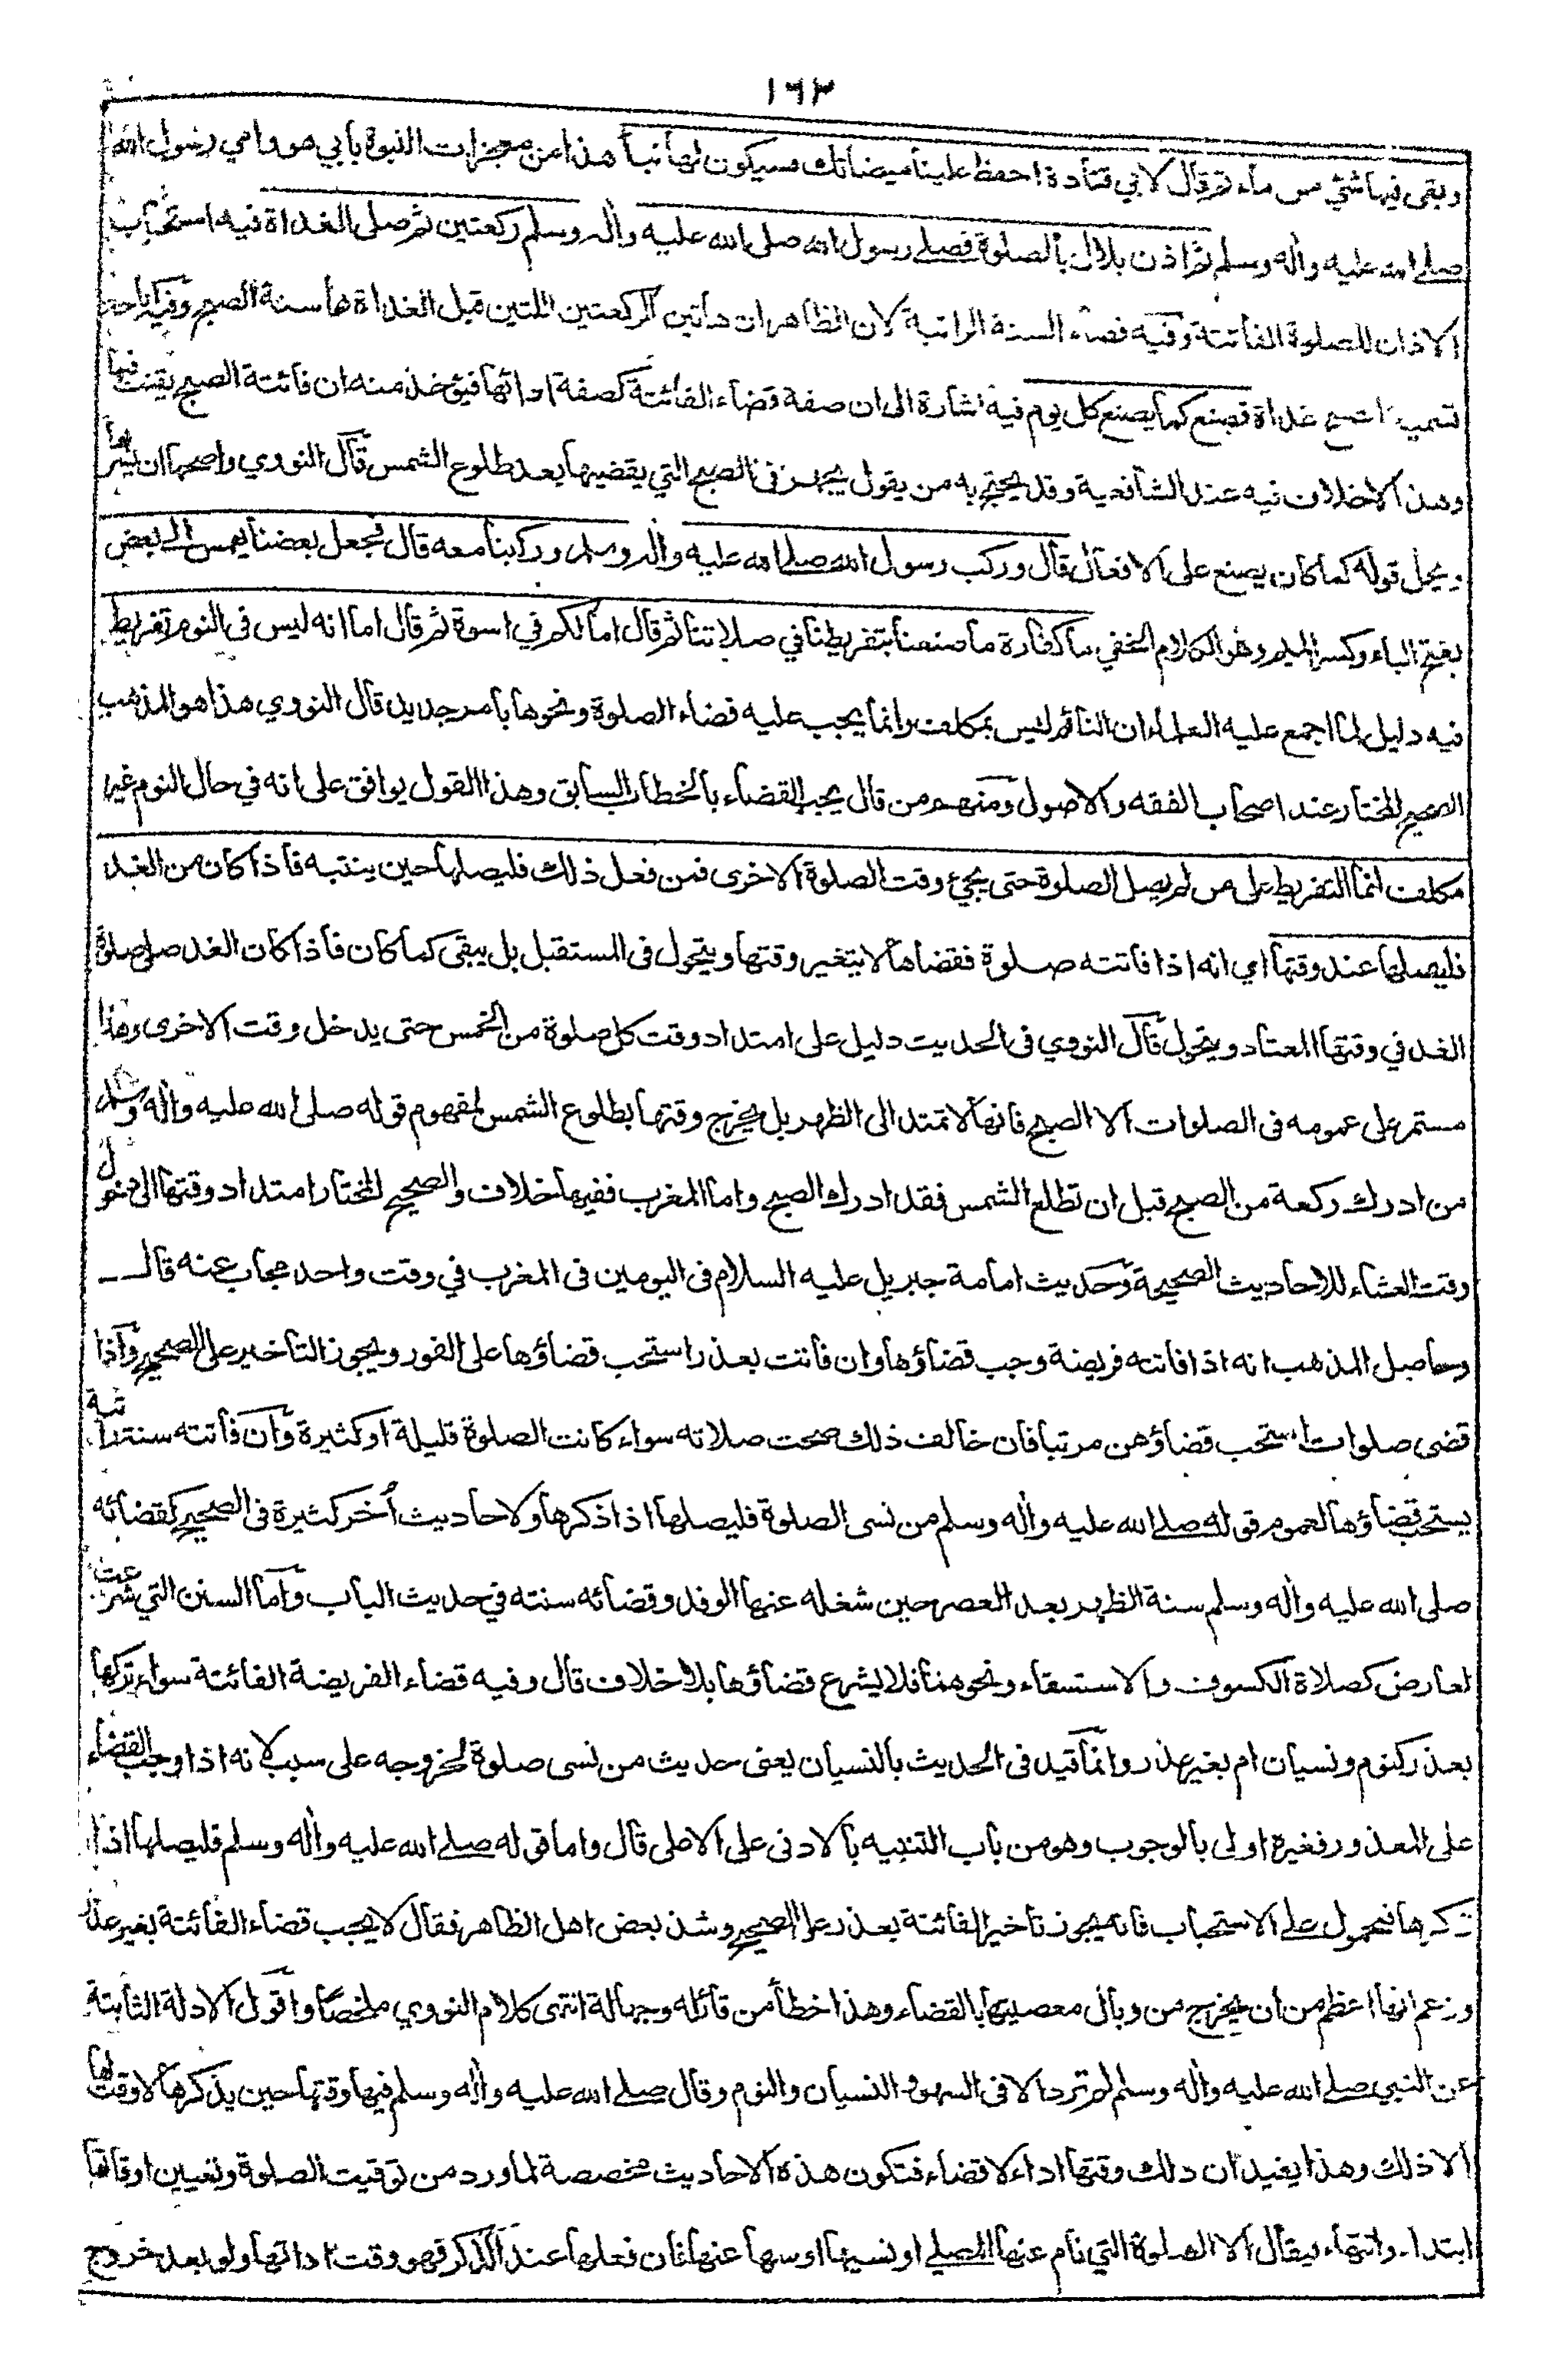 ١٦٣
وبقى فيها شئ من ماء ثم قال لابي قتادة احفظ علينا ميضأتك فسيكون لها نبأ هذا من معجزات النبوة بأبي هو وامي رسول الله
صلى الله عليه واٰله وسلم ثم اذن بلال بالصلوة فصلى رسول الله صلى الله عليه واٰله وسلم ركعتين ثم صلى الغداة فيه استحباب
الاذان للصلوة الفائتة وفيه قضاء السنة الراتبة لان الظاهر ان هاتين الركعتين اللتين قبل الغداة هما سنة الصبح وفيه اباحة
تسمية الصبح غداة فصنع كما يصنع كل يوم فيه اشارة الى ان صفة قضاء الفائتة كصفة ادائها فيؤخذ منه ان فائتة الصبح يقنت فيها
وهذا لاخلاف فيه عند الشافعية وقد يحتج به من يقول يجهر في الصبح التي يقضيها بعد طلوع الشمس قال النووي واصحهما ان يسر بها
ويحمل قوله كما كان يصنع على الافعال قال وركب رسول الله صلى الله عليه واٰله وسلم وركبنا معه قال فجعل بعضنا يهمس الى بعض
بفتح الياء وكسر الميم وهو الكلام الخفي ما كفارة ما صنعنا بتفريطنا في صلاتنا ثم قال اما لكم في اسوة ثم قال اما انه ليس في النوم تفريط
فيه دليل لما اجمع عليه العلماء ان النائم ليس بمكلف وانما يجب عليه قضاء الصلوة ونحوها بامر جديد قال النووي هذا هو المذهب
الصحيح المختار عند اصحاب الفقه والاصول ومنهم من قال يجب القضاء بالخطاب السابق وهذا القول يوافق على انه في حال النوم غير
مكلف انما التفريط على من لم يصل الصلوة حتى يجئ وقت الصلوة الاخرى فمن فعل ذلك فليصلها حين ينتبه فاذا كان من الغد
فليصلها عند وقتها اي انه اذا فاتته صلوة فقضاها لا يتغير وقتها ويتحول في المستقبل بل يبقى كما كان فاذا كان الغد صلى صلوة
الغد في وقتها المعتاد ويتحول قال النووي في الحديث دليل على امتداد وقت كل صلوة من الخمس حتى يدخل وقت الاخرى وهذا
مستمر على عمومه في الصلوات الا الصبح فانها لا تمتد الى الظهر بل يخرج وقتها بطلوع الشمس لمفهوم قوله صلى الله عليه واٰله وسلم
من ادرك ركعة من الصبح قبل ان تطلع الشمس فقد ادرك الصبح واما المغرب ففيها خلاف والصحيح المختار امتداد وقتها الى دخول
وقت العشاء للاحاديث الصحيحة وحديث امامة جبريل عليه السلام في اليومين في المغرب في وقت واحد مجاب عنه قال
وحاصل المذهب انه اذا فاتته فريضة وجب قضاؤها وان فاتت بعذر استحب قضاؤها على الفور ويجوز التأخير على الصحيح واذا
قضى صلوات استحب قضاؤهن مرتبا فان خالف ذلك صحت صلاته سواء كانت الصلوة قليلة او كثيرة وان فاتته سنة راتبة
يستحب قضاؤها لعموم قوله صلى الله عليه واٰله وسلم من نسى الصلوة فليصلها اذا ذكرها ولاحاديث أخر كثيرة في الصحيح كقضائه
صلى الله عليه واٰله وسلم سنة الظهر بعد العصر حين شغله عنها الوفد وقضائه سنته في حديث الباب واما السنن التي شرعت
لعارض كصلاة الكسوف والاستسقاء ونحوهما فلا يشرع قضاؤها بلا خلاف قال وفيه قضاء الفريضة الفائتة سواء تركها
بعذر كنوم ونسيان ام بغير عذر وانما قيد في الحديث بالنسيان يعنى حديث من نسى صلوة لخروجه على سبب لانه اذا وجب القضاء
على المعذور فغيره اولى بالوجوب وهو من باب التنبيه بالادنى على الاعلى قال واما قوله صلى الله عليه واٰله وسلم فليصلها اذا
ذكرها فمحمول على الاستحباب فانه يجوز تاخير الفائتة بعذر على الصحيح وشذ بعض اهل الظاهر فقال لا يجب قضاء الفائتة بغير عذر
وزعم انها اعظم من ان يخرج من وبال معصيتها بالقضاء وهذا خطأ من قائله وجهالة انتهى كلام النووي ملخصًا واقول الادلة الثابتة
عن النبي صلى الله عليه واٰله وسلم لم ترد الا في السهو والنسيان والنوم وقال صلى الله عليه واٰله وسلم فيها وقتها حين يذكرها لا وقت لها
الا ذلك وهذا يفيد ان ذلك وقتها اداء لا قضاء فتكون هذه الاحاديث مخصصة لما ورد من توقيت الصلوة وتعيين اوقاتها
ابتداء وانتهاء فيقال الا الصلوة التي نام عنها المصلى او نسيها او سها عنها فان فعلها عند الذكر فهو وقت ادائها ولو بعد خروج